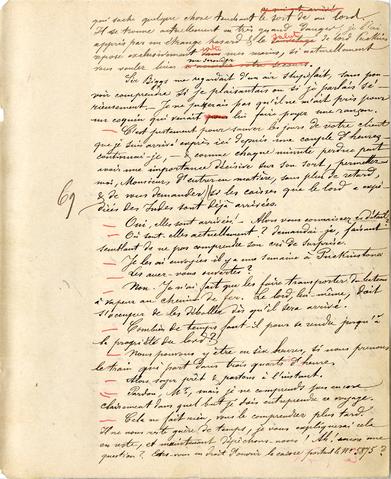 qui sache quelque chose touchant le sort de ce lord.
Il se trouve actuellement en très grand danger, je l'ai
appris par un étrange hasard & le salut de lord Puckinstone
repose exclusivement entre vos mains, si naturellement
vous voulez bien me donner
Sir Biggs me regardait d'un air stupéfait, sans pou-
voir comprendre si je plaisantais ou si je parlais sé-
rieusement. Je ne jurerais pas qu'il ne m'ait pris pour
un coquin qui venait lui faire payer une rançon.
— C'est justement pour sauver les jours de votre client
que je suis arrivé ici depuis une couple d'heures
continuai-je, — & comme chaque minute perdue peut
avoir une importance décisive sur son sort, permettez-
moi, Monsieur, d'entrer en matière, sans plus de retard,
& de vous demander si les caisses que le lord a expé-
diées des Indes sont déjà arrivées.
69
— Oui, elles sont arrivées. — Alors vous connaissez
— Où sont-elles actuellement? demandai-je, faisant
semblant de ne pas comprendre son cri de surprise.
— Je les ai envoyées il y a une semaine à Puckinstone
— Les avez-vous ouvertes?
— Non. Je n'ai fait que les faire transporter du bateau
à vapeur au chemin de fer. Le lord, lui-même, doit
s'occuper de les déballer dès qu'il sera arrivé.
— Combien de temps faut-il pour se rendre jusqu'à
la propriété du lord?
— Nous pouvons y être en six heures, si nous prenons
le train qui part dans trois quarts d'heure.
— Alors soyez prêt & partons à l'instant.
— Pardon, Mr, mais je ne comprends pas encore
clairement dans quel but je dois entreprendre ce voyage.
— Cela ne fait rien, vous le comprendrez plus tard.
Il ne nous reste guère de temps, je vous expliquerai cela
en route, et maintenant dépêchons-nous! Ah! encore une
question? Êtes-vous en droit d'ouvrir la caisse portant le No 5875?